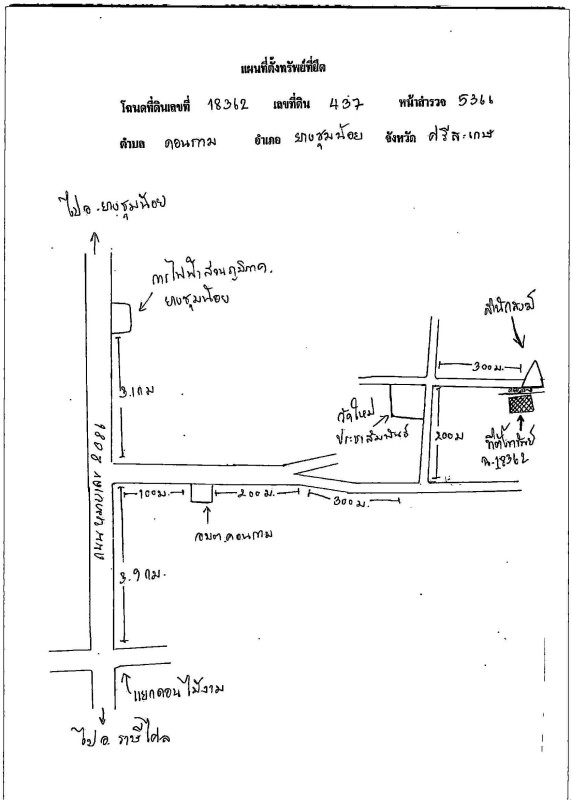 แผนที่ตั้งทรัพย์ที่ยึด
โฉนดที่ดินเลขที่ 18362 เลขที่ดิน 437 หน้าสำรวจ 5366
ตำบล คอนกาม อำเภอ ยางชุมน้อย จังหวัด ศรีสะเกษ
ไป อ.ยางชุมน้อย
การไฟฟ้าส่วนภูมิภาค.
ยางชุมน้อย
สำนักสงฆ์
300 ม.
3.1 กม
วัดใหม่
ประชาสัมพันธ์
200 ม
ที่ตั้งทรัพย์
น.18362
ถนนหมายเลข
100 ม.
200 ม.
300 ม.
อบต.คอนกาม
3.9 กม.
แยกดอนไม้งาม
ไป อ. ราษีไศล